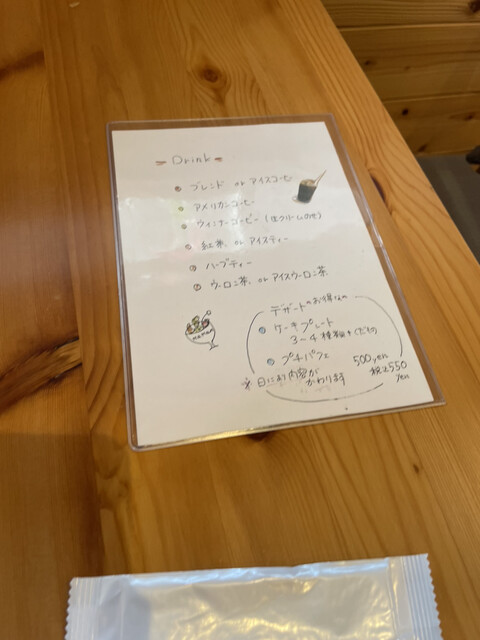 Drink
ブレンド or アイスコーヒー
アメリカンコーヒー
ウィンナーコーヒー (生クリームのせ)
紅茶 or アイスティー
ハーブティー
ウーロン茶 or アイスウーロン茶
デザートのお得な
ケーキプレート
3～4種類+くだもの
プチパフェ
500yen
税込550yen
※日により内容がかわります